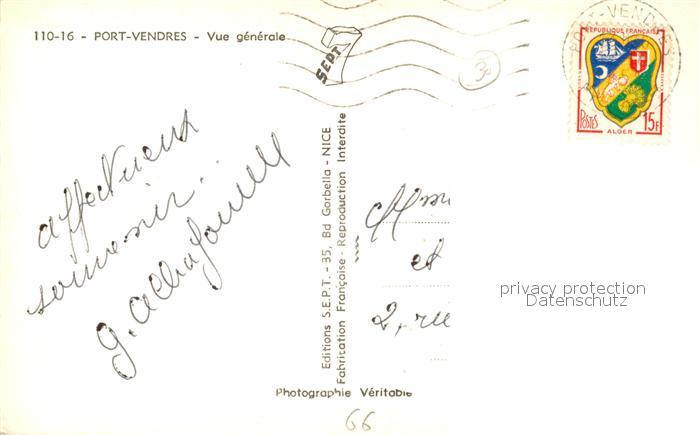 110-16 - PORT-VENDRES - Vue générale
SEPT
30
PORT-VENDRES
REPUBLIQUE FRANÇAISE
POSTES
15F
ALGER
affectueux
souvenir.
Editions S.E.P.T. - 35, Bd Gorbella - NICE
Fabrication Française - Reproduction Interdite
et
2, rue
privacy protection
Datenschutz
Photographie Véritable
66